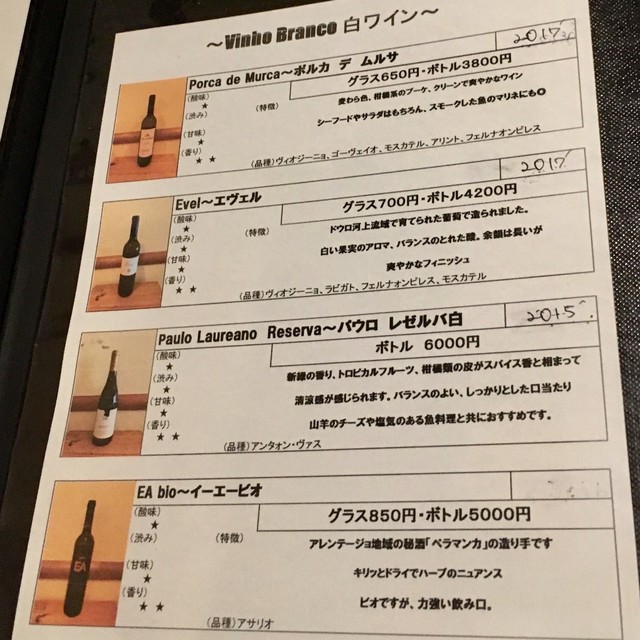 ～Vinho Branco 白ワイン～
Porca de Murca～ポルカ デ ムルサ
2017
グラス650円・ボトル3800円
(酸味)
★
(渋み)
★
(甘味)
★
(香り)
★ ★
(特徴)
麦わら色、柑橘系のブーケ、クリーンで爽やかなワイン
シーフードやサラダはもちろん、スモークした魚のマリネにも◎
(品種)ヴィオジーニョ、ゴーヴェイオ、モスカテル、アリント、フェルナオンピレス
Evel～エヴェル
2017
グラス700円・ボトル4200円
(酸味)
★
(渋み)
★
(甘味)
★
(香り)
★ ★
(特徴)
ドウロ河上流域で育てられた葡萄で造られました。
白い果実のアロマ、バランスのとれた酸。余韻は長いが
爽やかなフィニッシュ
(品種)ヴィオジーニョ、ラビガト、フェルナオンピレス、モスカテル
Paulo Laureano Reserva～パウロ レゼルバ白
2015
ボトル 6000円
(酸味)
★
(渋み)
★
(甘味)
★
(香り)
★ ★
(特徴)
新緑の香り、トロピカルフルーツ、柑橘類の皮がスパイス香と相まって
清涼感が感じられます。バランスのよい、しっかりとした口当たり
山羊のチーズや塩気のある魚料理と共におすすめです。
(品種)アンタォン・ヴァス
EA bio～イーエービオ
グラス850円・ボトル5000円
(酸味)
★
(渋み)
(甘味)
★
(香り)
★ ★
(特徴)
アレンテージョ地域の秘酒「ペラマンカ」の造り手です
キリッとドライでハーブのニュアンス
ビオですが、力強い飲み口。
(品種)アサリオ
EA